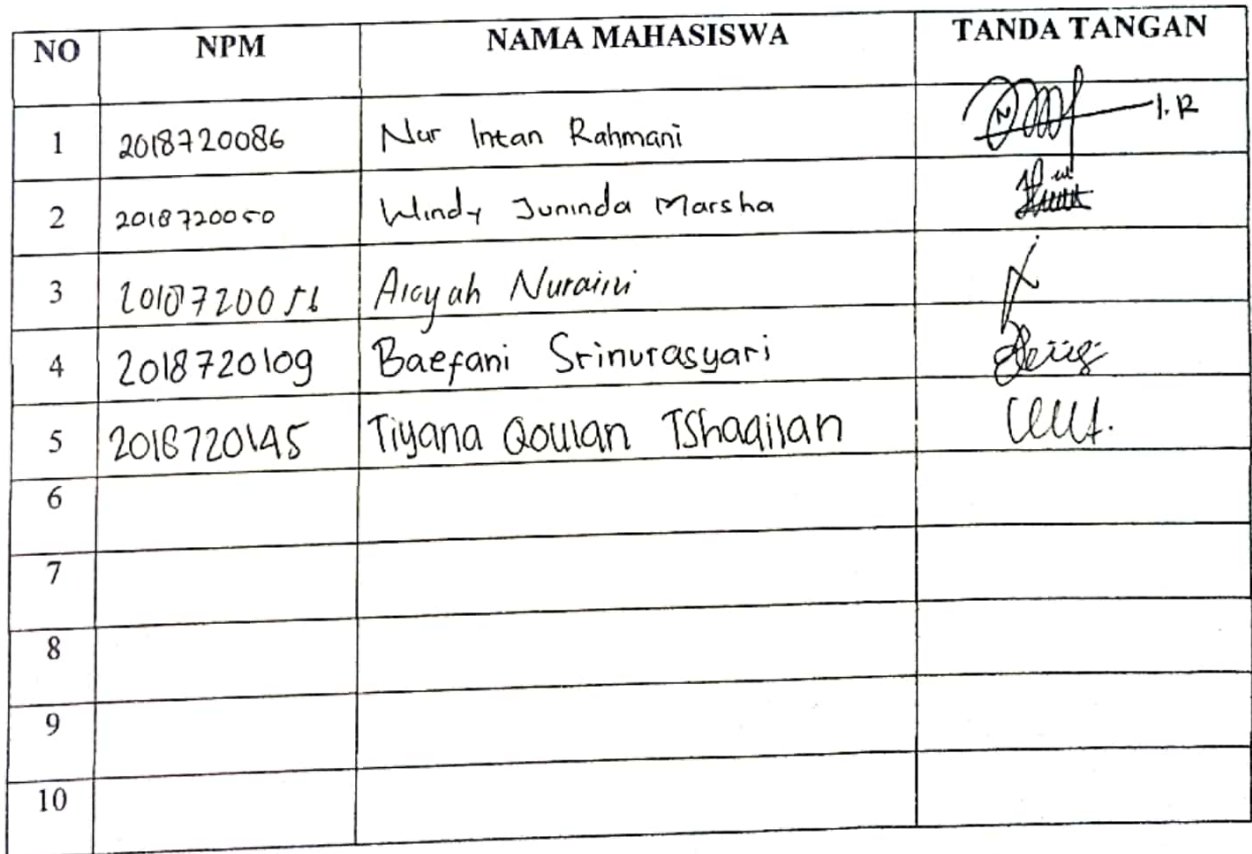 NO NPM NAMA MAHASISWA TANDA TANGAN
1 2018720086 Nur Intan Rahmani I.R
2 2018720050 Windy Juninda Marsha
3 2018720056 Aisyah Nuraini
4 2018720109 Baefani Srinurasyari
5 2018720145 Tiyana Qoulan Tshaqilan
6
7
8
9
10